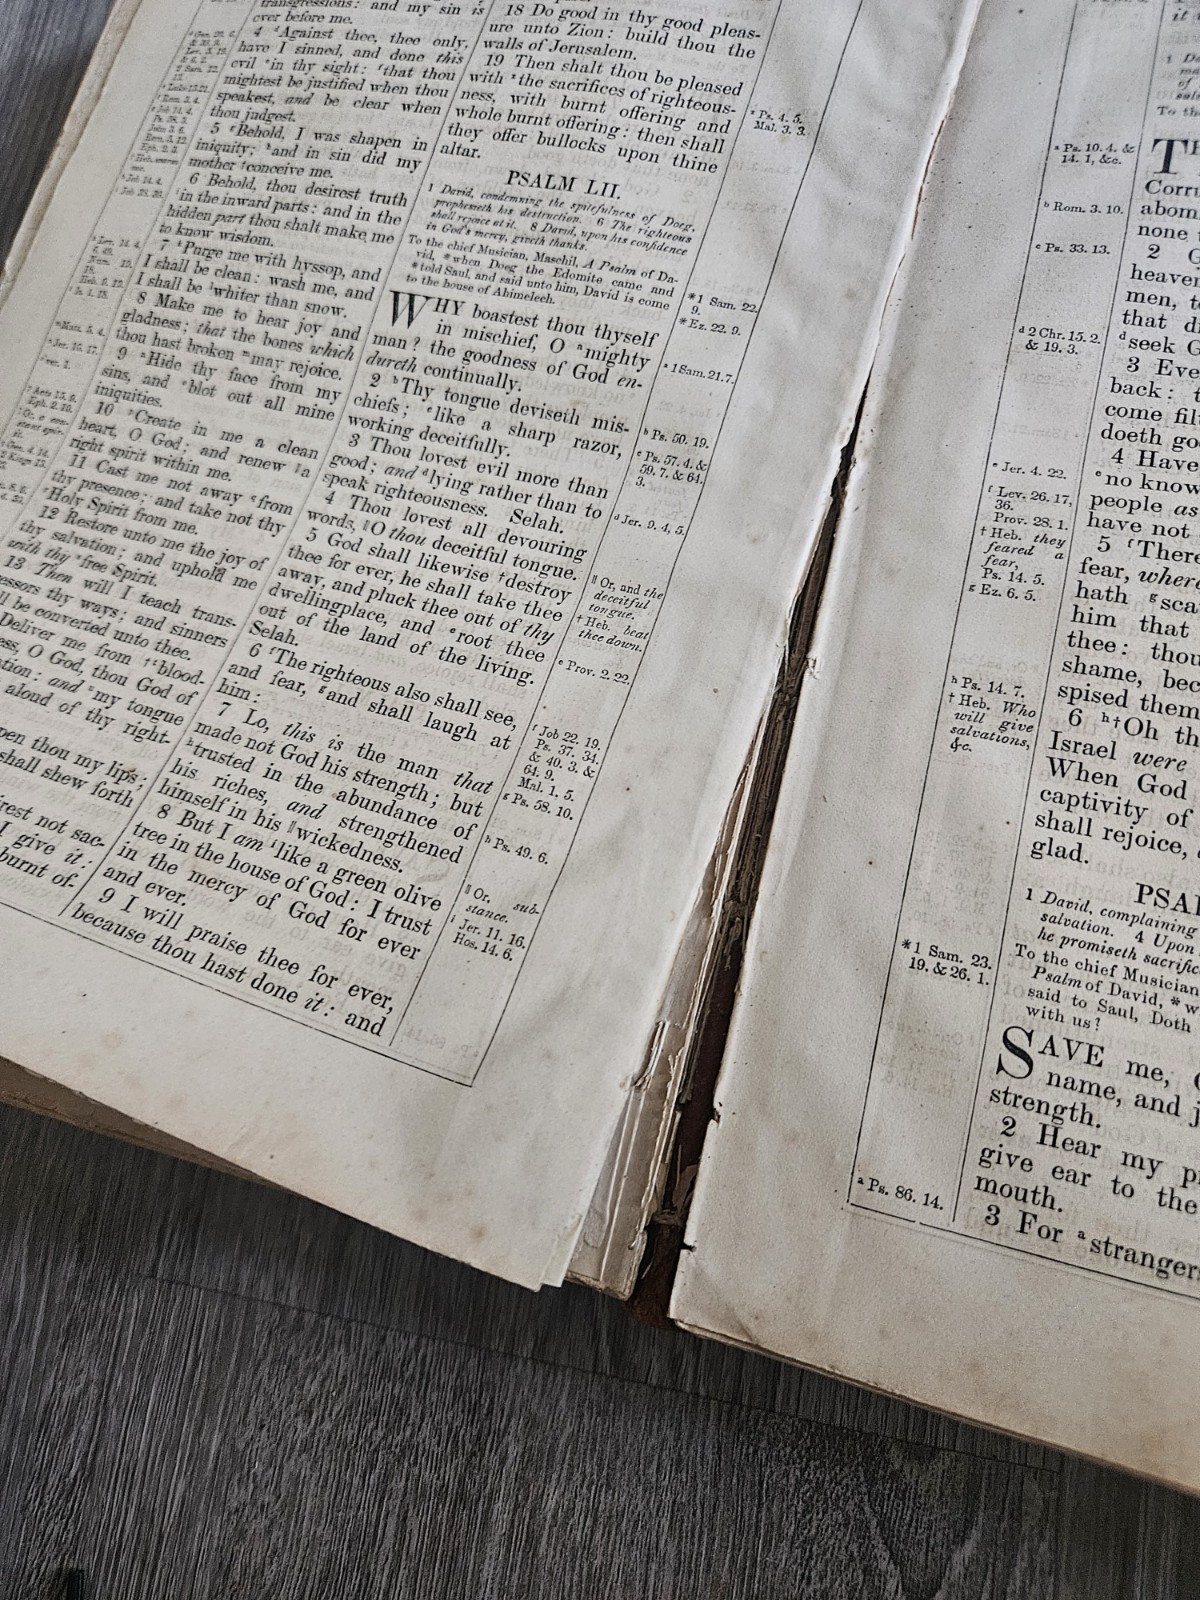 transgressions: and my sin is
ever before me.
4 dAgainst thee, thee only,
have I sinned, and done this
evil ein thy sight: fthat thou
mightest be justified when thou
speakest, and be clear when
thou judgest.
5 gBehold, I was shapen in
iniquity; hand in sin did my
mother †conceive me.
6 Behold, thou desirest truth
iin the inward parts: and in the
hidden part thou shalt make me
to know wisdom.
7 kPurge me with hyssop, and
I shall be clean: wash me, and
I shall be lwhiter than snow.
8 Make me to hear joy and
gladness; that the bones which
thou hast broken mmay rejoice.
9 nHide thy face from my
sins, and oblot out all mine
iniquities.
10 pCreate in me a clean
heart, O God; and renew ‖a
right spirit within me.
11 Cast me not away qfrom
thy presence; and take not thy
rHoly Spirit from me.
12 Restore unto me the joy of
thy salvation; and uphold me
with thy sfree Spirit.
13 Then will I teach trans-
essors thy ways; and sinners
ll be converted unto thee.
Deliver me from †tblood-
ess, O God, thou God of
ation: and umy tongue
aloud of thy right-
pen thou my lips;
shall shew forth
irest not sac-
I give it:
burnt of-
18 Do good in thy good pleas-
ure unto Zion: build thou the
walls of Jerusalem.
19 Then shalt thou be pleased
with xthe sacrifices of righteous-
ness, with burnt offering and
whole burnt offering: then shall
they offer bullocks upon thine
altar.
x Ps. 4. 5.
Mal. 3. 3.
PSALM LII.
1 David, condemning the spitefulness of Doeg,
prophesieth his destruction. 6 The righteous
shall rejoice at it. 8 David, upon his confidence
in God's mercy, giveth thanks.
To the chief Musician, Maschil, A Psalm of Da-
vid, *when Doeg the Edomite came and
*told Saul, and said unto him, David is come
to the house of Ahimelech.
*1 Sam. 22.
9.
*Ez. 22. 9.
WHY boastest thou thyself
in mischief, O amighty
man? the goodness of God en-
dureth continually.
2 bThy tongue deviseth mis-
chiefs; clike a sharp razor,
working deceitfully.
3 Thou lovest evil more than
good; and dlying rather than to
speak righteousness. Selah.
4 Thou lovest all devouring
words, ‖O thou deceitful tongue.
5 God shall likewise †destroy
thee for ever, he shall take thee
away, and pluck thee out of thy
dwellingplace, and eroot thee
out of the land of the living.
Selah.
6 fThe righteous also shall see,
and fear, gand shall laugh at
him:
7 Lo, this is the man that
made not God his strength; but
htrusted in the abundance of
his riches, and strengthened
himself in his ‖wickedness.
8 But I am ilike a green olive
tree in the house of God: I trust
in the mercy of God for ever
and ever.
9 I will praise thee for ever,
because thou hast done it: and
a 1 Sam. 21. 7.
b Ps. 50. 19.
c Ps. 57. 4. &
59. 7. & 64.
3.
d Jer. 9. 4, 5.
‖ Or, and the
deceitful
tongue.
† Heb. beat
thee down.
e Prov. 2. 22.
f Job 22. 19.
Ps. 37. 34.
& 40. 3. &
64. 9.
Mal. 1. 5.
g Ps. 58. 10.
h Ps. 49. 6.
‖ Or, sub-
stance.
i Jer. 11. 16.
Hos. 14. 6.
a Ps. 10. 4. &
14. 1, &c.
b Rom. 3. 10.
c Ps. 33. 13.
d 2 Chr. 15. 2.
& 19. 3.
e Jer. 4. 22.
f Lev. 26. 17,
36.
Prov. 28. 1.
† Heb. they
feared a
fear,
Ps. 14. 5.
g Ez. 6. 5.
h Ps. 14. 7.
† Heb. Who
will give
salvations,
&c.
*1 Sam. 23.
19. & 26. 1.
a Ps. 86. 14.
To th
TH
Corr
abom
none
2 G
heaven
men, to
that di
dseek G
3 Eve
back: t
come filt
doeth go
4 Have
eno know
people as
have not
5 fThere
fear, where
hath gsca
him that
thee: thou
shame, bec
spised them
6 h†Oh th
Israel were
When God
captivity of
shall rejoice,
glad.
PSAL
1 David, complaining
salvation. 4 Upon
he promiseth sacrific
To the chief Musician
Psalm of David, *w
said to Saul, Doth
with us?
SAVE me, O
name, and j
strength.
2 Hear my p
give ear to the
mouth.
3 For astrangers